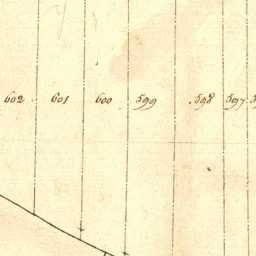 602 601 600 599 598 597